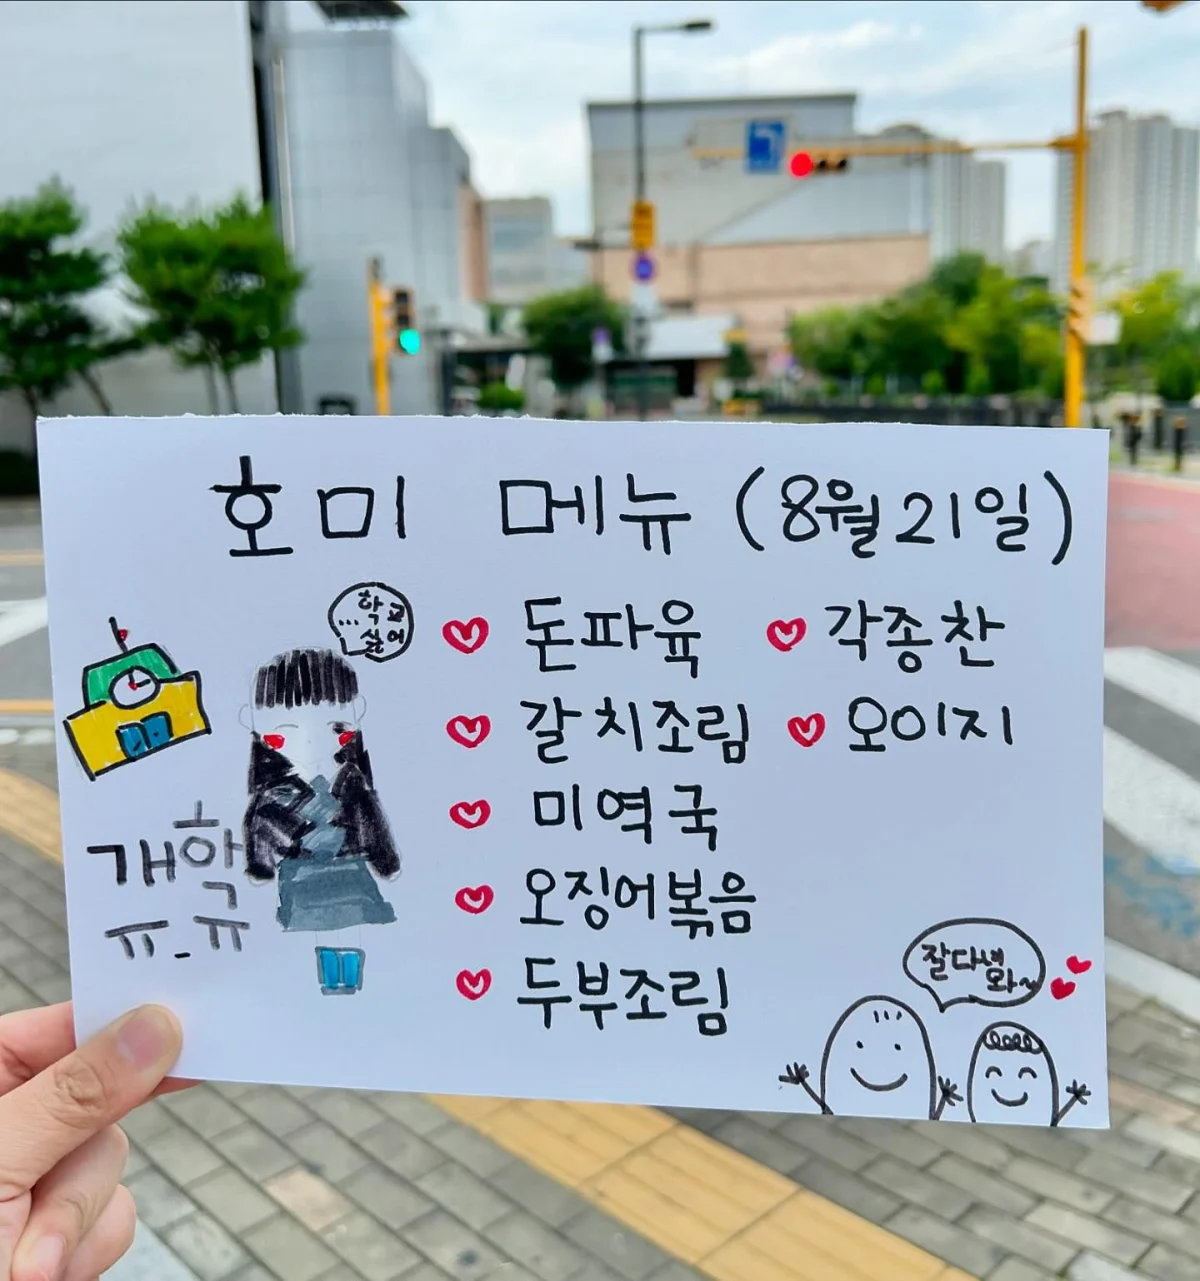 호미 메뉴 (8월21일)
...학교
싫어
개학
ㅠ_ㅠ
돈파육
갈치조림
미역국
오징어볶음
두부조림
각종찬
오이지
잘다녀
와~